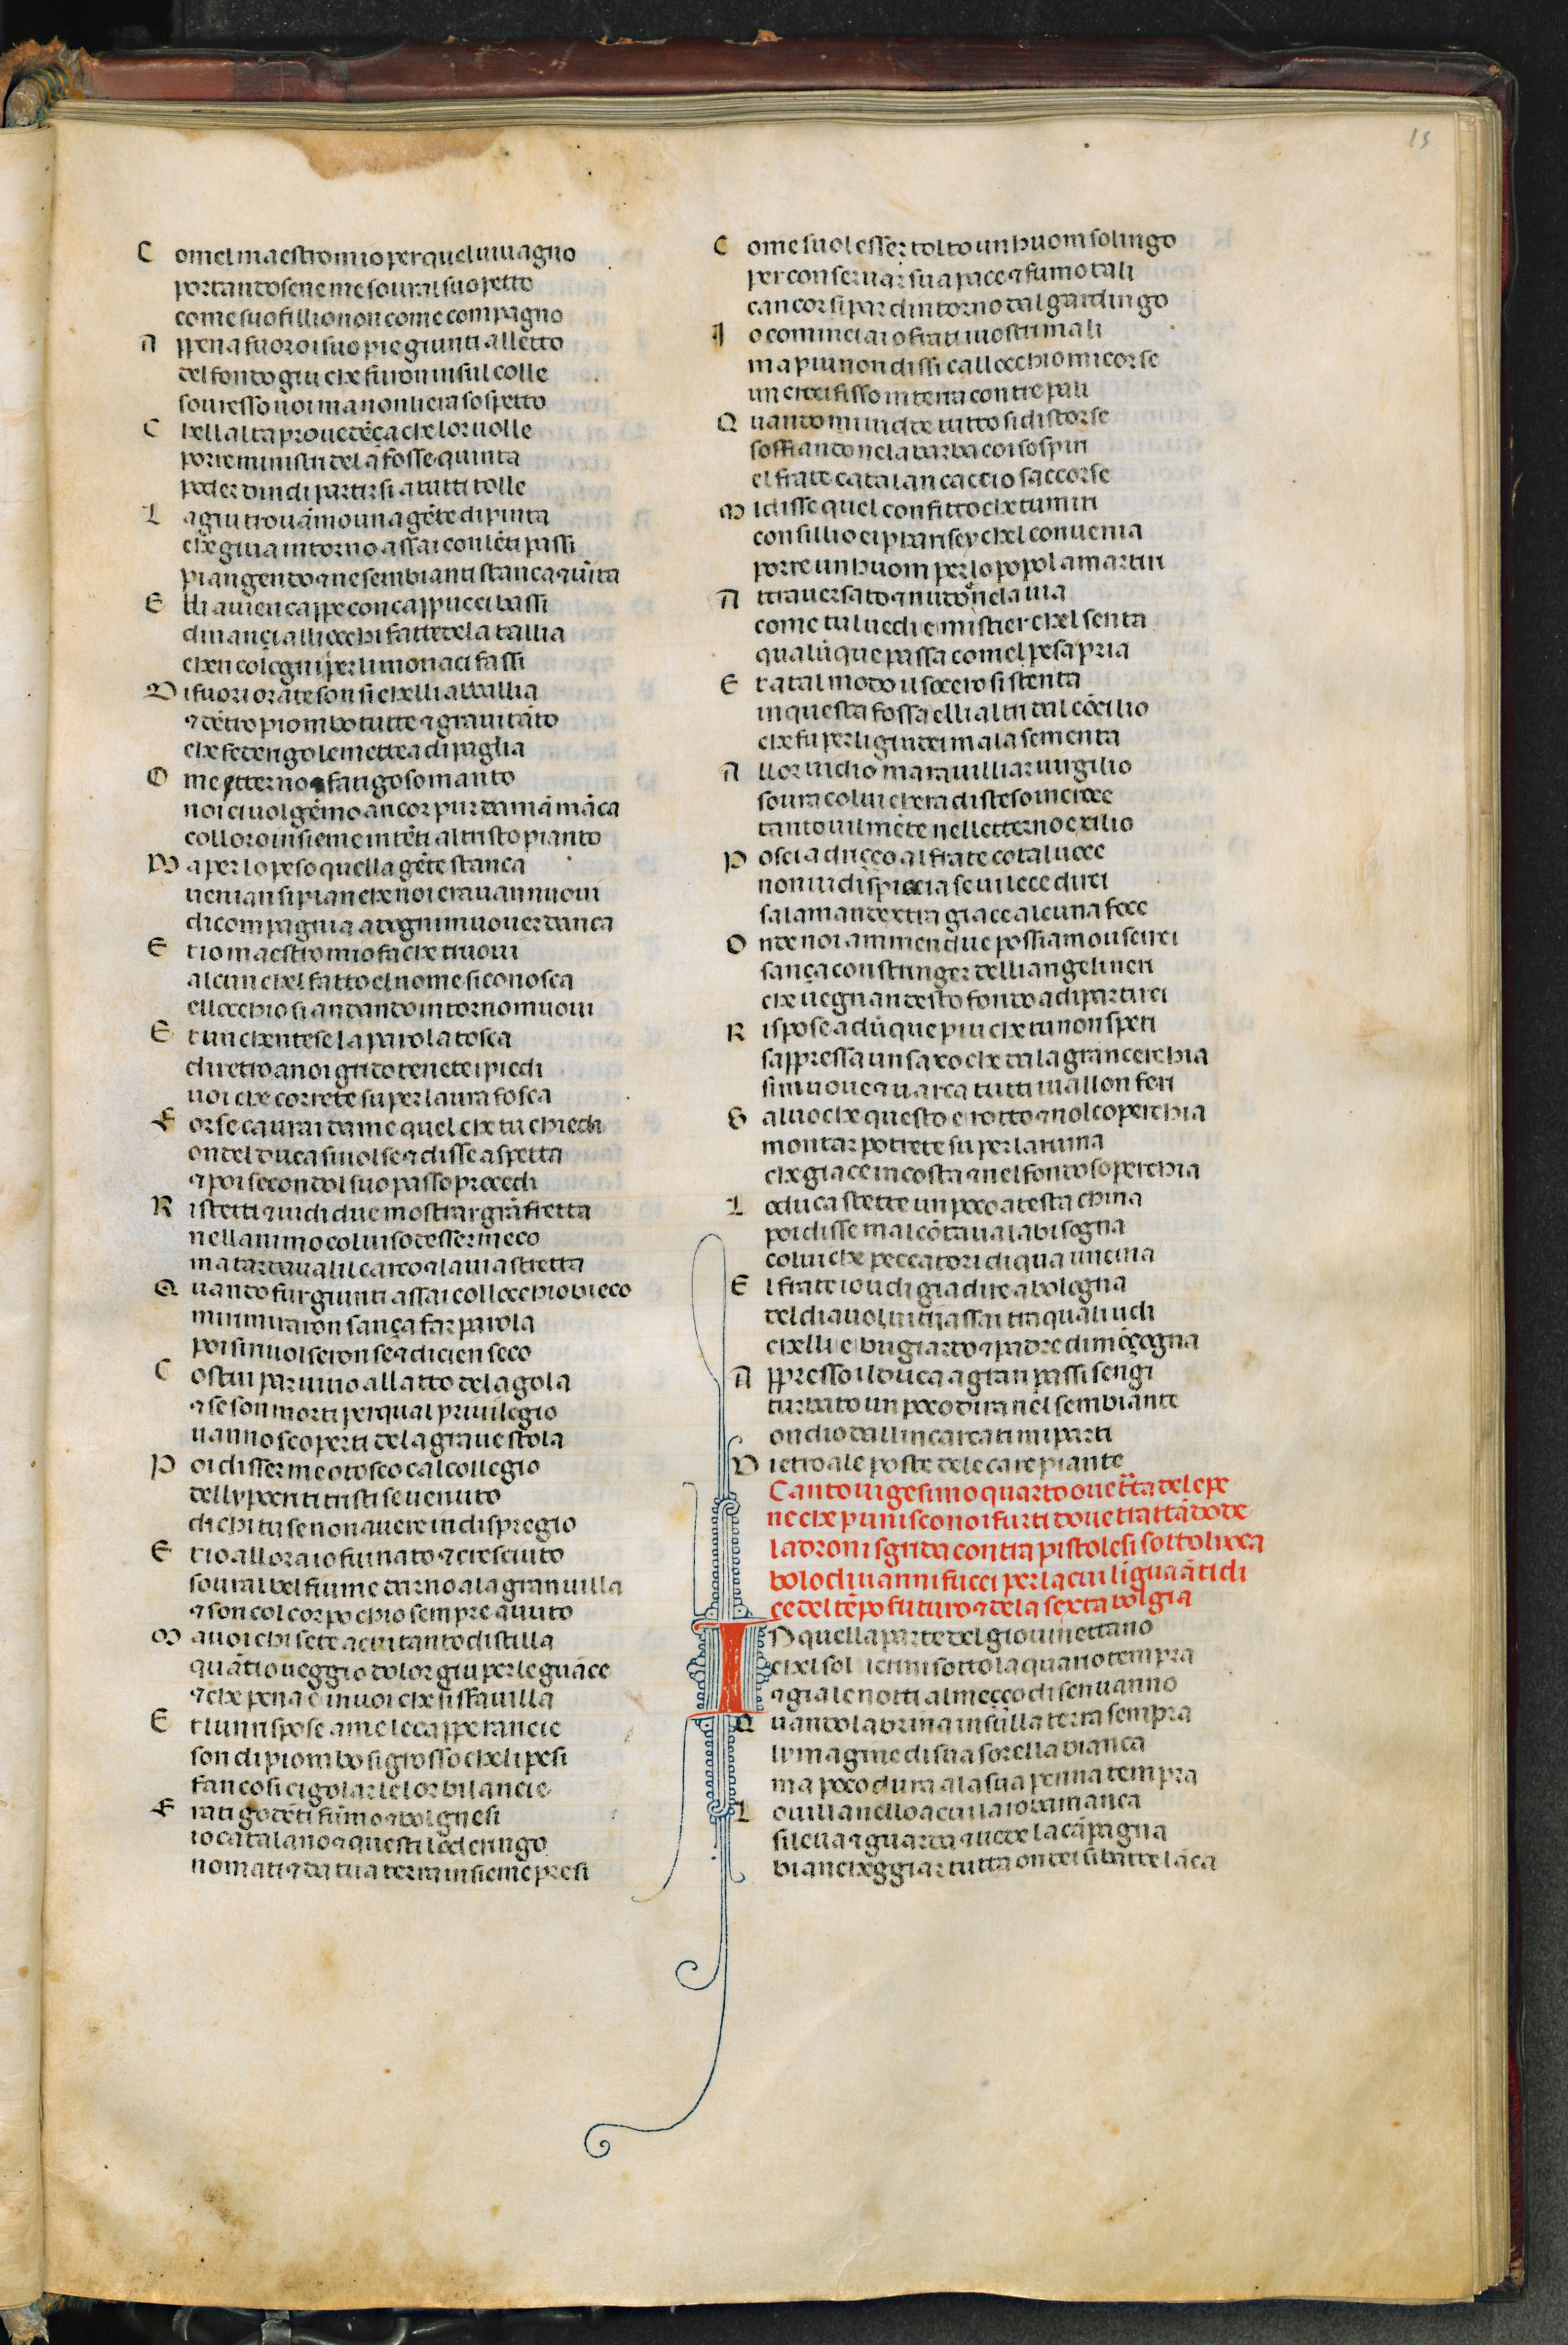 15
C omel maestro mio per quel viuagno
portandosene me soural suo petto
come suo fillio non come compagno
A ppena fuoro i suo pie giunti alletto
del fondo giu che furon in sul colle
souresso noi ma non li era sospetto
C hellalta prouedēça che lor uolle
porre ministri dela fosse quinta
poder dindi partirsi a tutti tolle
L agiu trouāmo una gēte dipinta
che giua intorno assai con lēti passi
piangendo ⁊ nesembianti stanca ⁊ uīta
E lli auien cappe con cappucci bassi
dinançi alliocchi fatte dela tallia
chen cologni per li monaci fassi
D i fuori orate son si chelli abballia
⁊ dētro piombo tutte ⁊ grauitāto
che federigo le mettea di paglia
O me etterno ⁊ fatigoso manto
noi ci uolgēmo ancor pur da mā māca
colloro insieme intēti al tristo pianto
M a per lo peso quella gēte stanca
uenian si pian che noi erauan nuoui
di compagnia a degni muouer danca
E tio maestro mio fa che truoui
alcun chel fatto el nome si conosca
ellocchio si andando intorno muoui
E tun chentese la parola tosca
diretro a noi grido tenete i piedi
uoi che correte si per laura fosca
F orse caurai da me quel che tu chiedi
ondel duca si uolse ⁊ disse aspetta
⁊ poi secondol suo passo procedi
R istetti ⁊ uidi due mostrar grā fretta
nellanimo col uiso desser meco
ma tardaualil carco ⁊ la uia stretta
Q uando fur giunti assai collocchio bieco
mi miraron sança far parola
poi si uolseron se ⁊ dicien seco
C ostui par uiuo allatto dela gola
⁊ se son morti per qual priuilegio
uanno scoperti dela graue stola
P oi disser me o tosco cal collegio
dellypocriti tristi se uenuto
di chi tu se non auere in dispregio
E tio alloro io fui nato ⁊ cresciuto
soural bel fiume darno ala gran uilla
⁊ son col corpo chio sempre auuto
M a uoi chi sete a cui tanto distilla
quātio ueggio dolor giu per le guace
⁊ che pena e in uoi che si sfauilla
E tlun rispose a me le cappe rancie
son di piombo si grosso che li pesi
fan cosi cigolar le lor bilancie
F rati godēti fūmo ⁊ bolgnesi
io catalano ⁊ questi loderingo
nomati ⁊ da tua terra insieme presi
C ome suol esser tolto un huom solingo
per conseruar sua pace ⁊ fumo tali
cancor si par dintorno dal gardingo
I o cominciai o frati i uostri mali
ma piu non dissi callocchio mi corse
un crocifisso in terra con tre pali
Q uando mi uide tutto si distorse
soffiando nela barba coi sospiri
el frate catalan caccio saccorse
M i disse quel confitto che tu miri
consillio ei pharisey chel conuenia
porre un huom per lo popol a martiri
A ttrauersato ⁊ nudo nela uia
come tu luedi e mistier chel senta
qualūque passa comel pesa pria
E ta tal modo il socero si stenta
in questa fossa elli altri dal cōcilio
che fu per li giudei mala sementa
A llor uidio marauilliar uirgilio
soura colui chera disteso in croce
tanto uilmēte nelletterno exilio
P oscia driçço al frate cotal uoce
non ui dispiaccia se ui lece dirci
sala man dextra giace alcuna foce
O nde noi ammendue possiamo uscirci
sança constringer delliangeli neri
che uegnan desto fondo a dipartirci
R ispose adūque piu che tu non speri
sappressa un saxo che dala gran cerchia
si muoue ⁊ uarca tutti i uallon feri
S aluo che questo e rotto ⁊ nol coperchia
montar potrete su per la ruina
che giace in costa ⁊ nel fondo soperchia
L o duca stette un poco a testa china
poi disse mal cōtaua la bisogna
colui che peccatori di qua uncina
E l frate io udi gia dire a bologna
del diauol uitii assai tra quali udi
chelli e bugiardo ⁊ padre di mēçogna
A ppressoil duca a gran passi sen gi
turbato un poco dira nel sembiante
ondio dallincarcati mi parti
D ietro ale poste dele care piante
Canto uigesimo quarto oue tratta dele pe
ne che puniscono i furti doue trattādo de
ladroni sgrida contra pistolesi sotto il uoca
bolo di uanni fucci per la cui līgua ātidi
ce del tēpo futuro ⁊ dela sexta bolgia
I N quella parte del giouinettano
chel sol i crini sotto laquario tempra
⁊ gia le notti al meççodi sen uanno
Q uando la brina in sulla terra sempra
lymagine di sua sorella bianca
ma poco dura ala sua penna tempra
L o uillanello a cui la roba manca
si leua ⁊ guarda ⁊ uede la cāpagna
biancheggiar tutta ondei si batte lāca